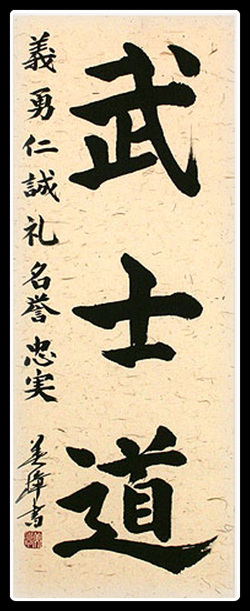 武士道
義勇仁誠礼名誉忠実